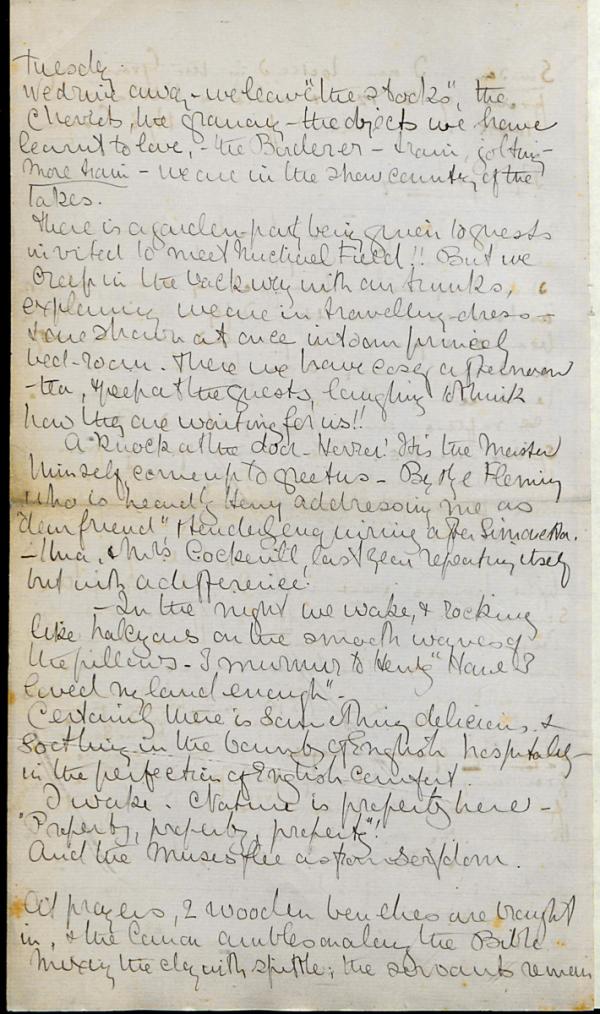 Tuesday.
We drive away - we leave "the stocks", the
Cheviots, the granary - the objects we have
learnt to love, - the Borderer - train, jolting -
More train - we are in the show country of the
Lakes.
There is a garden-party being given to guests
invited to meet Michael Field!! But we
creep in the back way with our trunks,
explaining we are in travelling-dress -
& are shown at once into our princely
bed-room. There we have cosy afternoon
-tea, & peep at the guests, laughing to think
how they are waiting for us!!
A knock at the door - It is the Meister
himself, come up to greet us - Fleming
who is heard by Heny addressing me as
"dear friend", & tenderly enquiring after
- & Mrs. Cockerill, last year repeating itself
but with a difference.
- In the night we wake, & rocking
like halcyons on the smooth waves of
the pillows - I murmur to Heny "Have I
loved my land enough" -
Certainly there is something delicious &
soothing in the bounty of English hospitality -
in the perfection of English comfort.
I wake. Nature is property here -
"Property, property, property"!
And the Muses flee as from serfdom.
At prayers, 2 wooden benches are brought
in, & the Canon ambles along the Bible
Mixing the clay with spittle; the servants remain